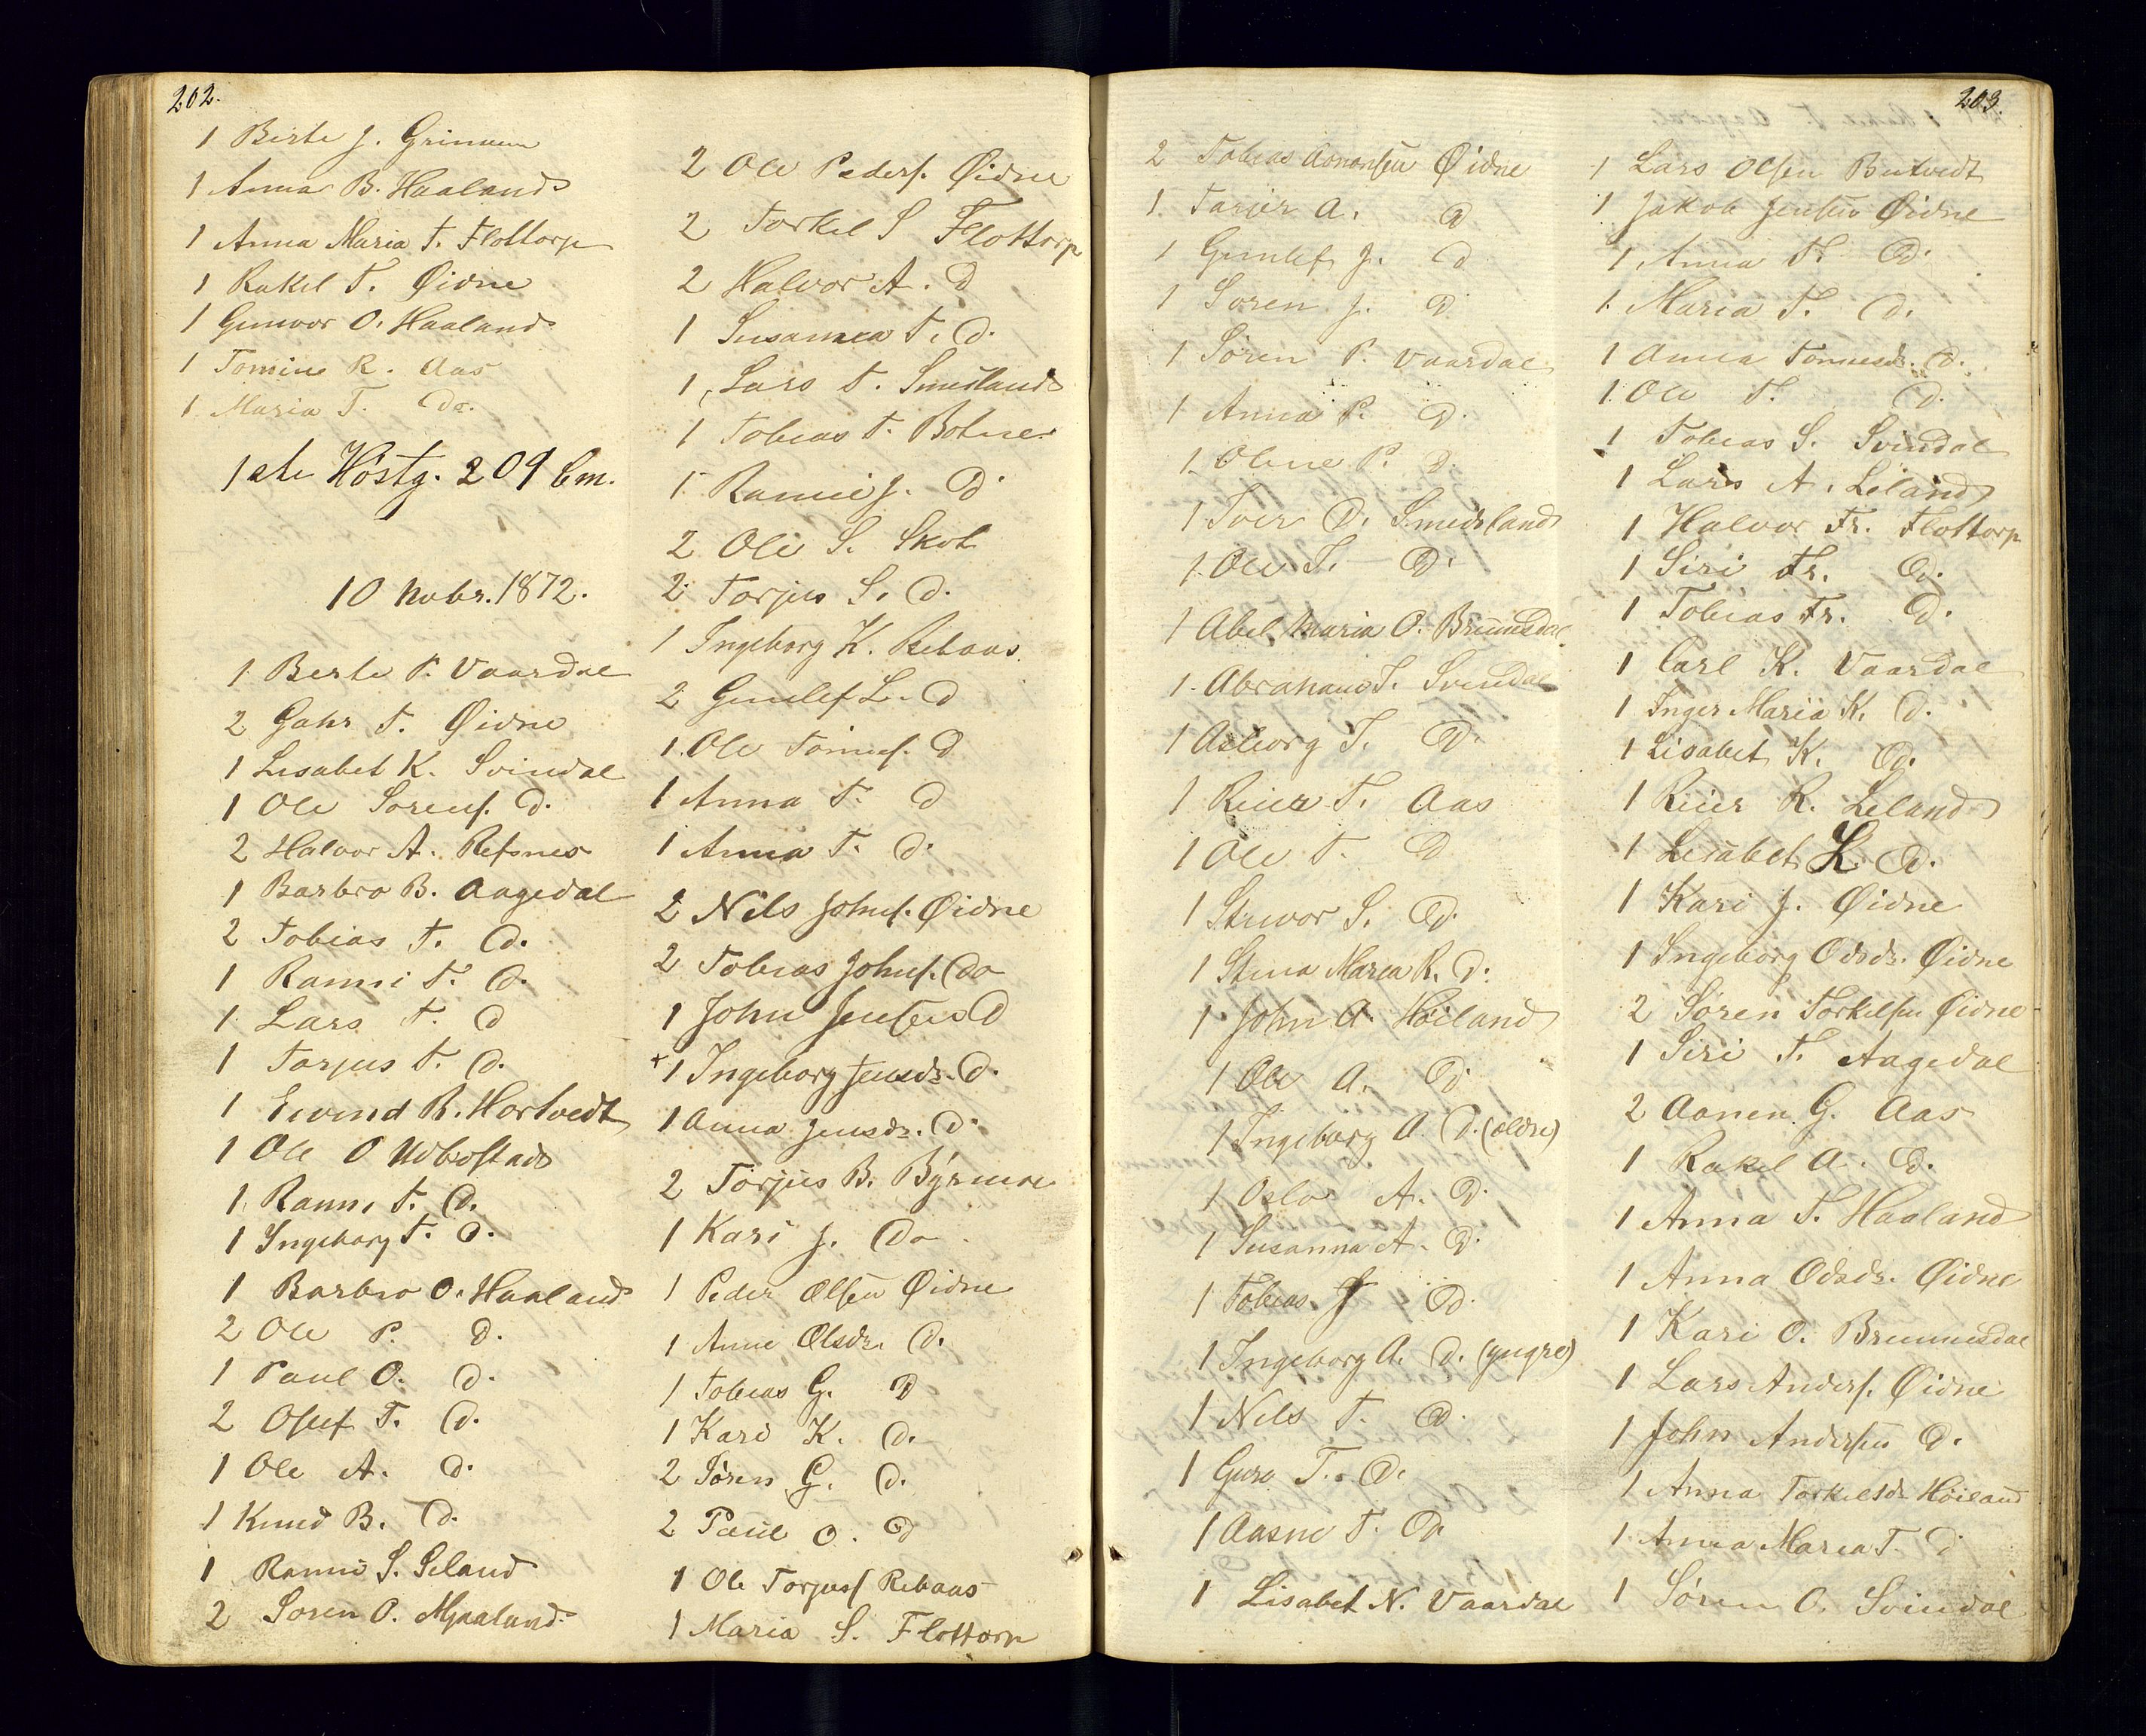 202.
1 Berte J. Grimum
1 Anna B. Haaland
1 Anna Maria T. Flottorp
1 Rakel T. Øidne
1 Gunvor O. Haaland
1 Tomine R. Aas
1 Maria T. Do.
1ste Høstg. 209 Cm.
10 Novbr. 1872.
1 Berte P. Vaardal
2 Gahr T. Øidne
1 Lisabet K. Svindal
1 Ole Sorens. D.
2 Halvor A. Refsnes
1 Barbro B. Aagedal
2 Tobias T. D.
1 Ranni T. D.
1 Lars T. D
1 Torjus T. D.
1 Eivind R. Hortvedt
1 Ole O Udbostad
1 Ranni T. D.
1 Ingeborg T. D.
1 Barbro O. Haaland
2 Ole P. D.
1 Paul O. D.
2 Osuf T. D.
1 Ole A. D.
1 Knud B. D.
1 Ranni S. Seland
2 Soren O. Mjaaland
2 Ole Peders. Øidne
2 Torkel S Flottorp
2 Halvor A. D
1 Susanna T. D.
1 Lars T. Smedsland
1 Tobias T. Botne
1 Ranni J. D
2 Ole S. Skot
2 Torjus S. D.
1 Ingeborg K. Rebaas
2 Gunlef L. D
1 Ole Tonnes. D
1 Anna T. D
1 Anna T. D.
2 Nils Johns. Øidne
2 Tobias Johns. Do
1 John Jensen D
+ 1 Ingeborg Jensdr. D.
1 Anna Jensdr. D.
2 Torjus B. Byrmoe
1 Kari J. Do
1 Peder Olsen Øidne
1 Anne Olsdr. D.
1 Tobias G. D
1 Kari K. D.
2 Søren G. D.
2 Paul O. D
1 Ole Torjuss Rebaas
1 Maria S. Flottorp
203.
2 Tobias Aanonsen Øidne
1. Tarjer A. D
1 Gunlef J. D
1 Soren J. D
1 Søren P. Vaardal
1 Anna P. D.
1 Oline P. D.
1 Iver O. Smedsland
1. Ole T. D.
1 Abel Maria O. Brunnesdal
1. Abraham T. Svendal
1 Asborg T. D.
1 Reier T. Aas
1 Ole T. D
1 Stuvor S. D.
1 Stina Maria R. D.
1 John A. Høiland
1 Ole A. D.
1 Ingeborg A. D. (ældre)
1 Oslo A. D.
1 Susanna A. D.
1 Tobias J D.
1 Ingeborg A. D. (yngre)
1 Nils T. D.
1 Guro T. D.
1 Aasne T. D.
1 Lisabet N. Vaardal
1 Lars Olsen Butvedt
1 Jakob Jensen Øidne
1 Anna T. D.
1. Maria T. D.
1 Anna Tonnesdr. D.
1. Ole T. D.
1 Tobias S. Svindal
1 Lars A. Leland
1 Halvor Fr. Flottorp
1 Siri Fr. D.
1 Tobias Fr. D.
1 Carl K. Vaardal
1 Inger Maria K. D.
1 Lisabet K. D.
1 Reier R. Leland
1 Lisabet L. D.
1 Kari J. Øidne
1 Ingeborg Odsdr. Øidne
2 Søren Torkelsen Øidne
1 Siri T. Aagedal
2 Aanen G. Aas
1 Rakel A. D.
1 Anna T. Haaland
1 Anna Odsdr. Øidne
1 Kari O. Brunnesdal
1 Lars Anders. Øidne
1 John Andersen D.
1 Anna Torkelsd. Høiland
1 Anna Maria T. D
1 Søren O. Svindal